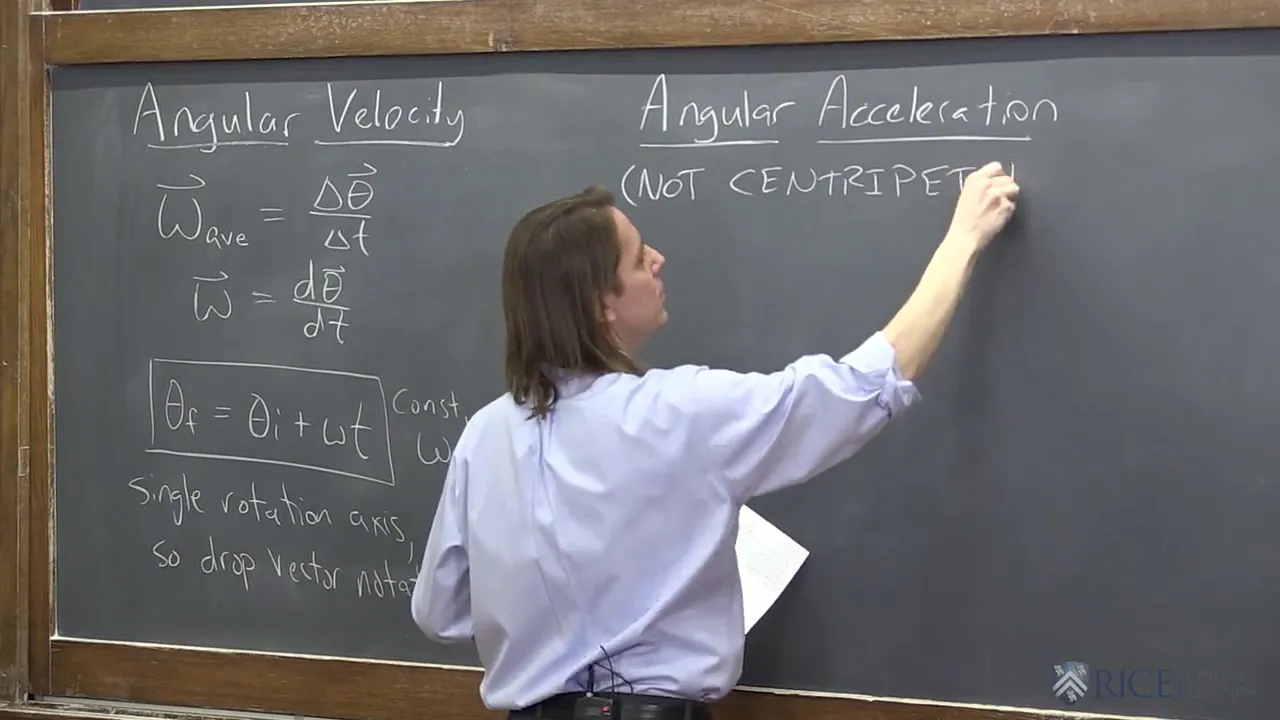 Angular Velocity
ω⃗ave = Δθ⃗/Δt
ω⃗ = dθ⃗/dt
θf = θi + ωt
Const.
ω
single rotation axis,
so drop vector
Angular Acceleration
(NOT
RICE
ONLINE
LEARNING